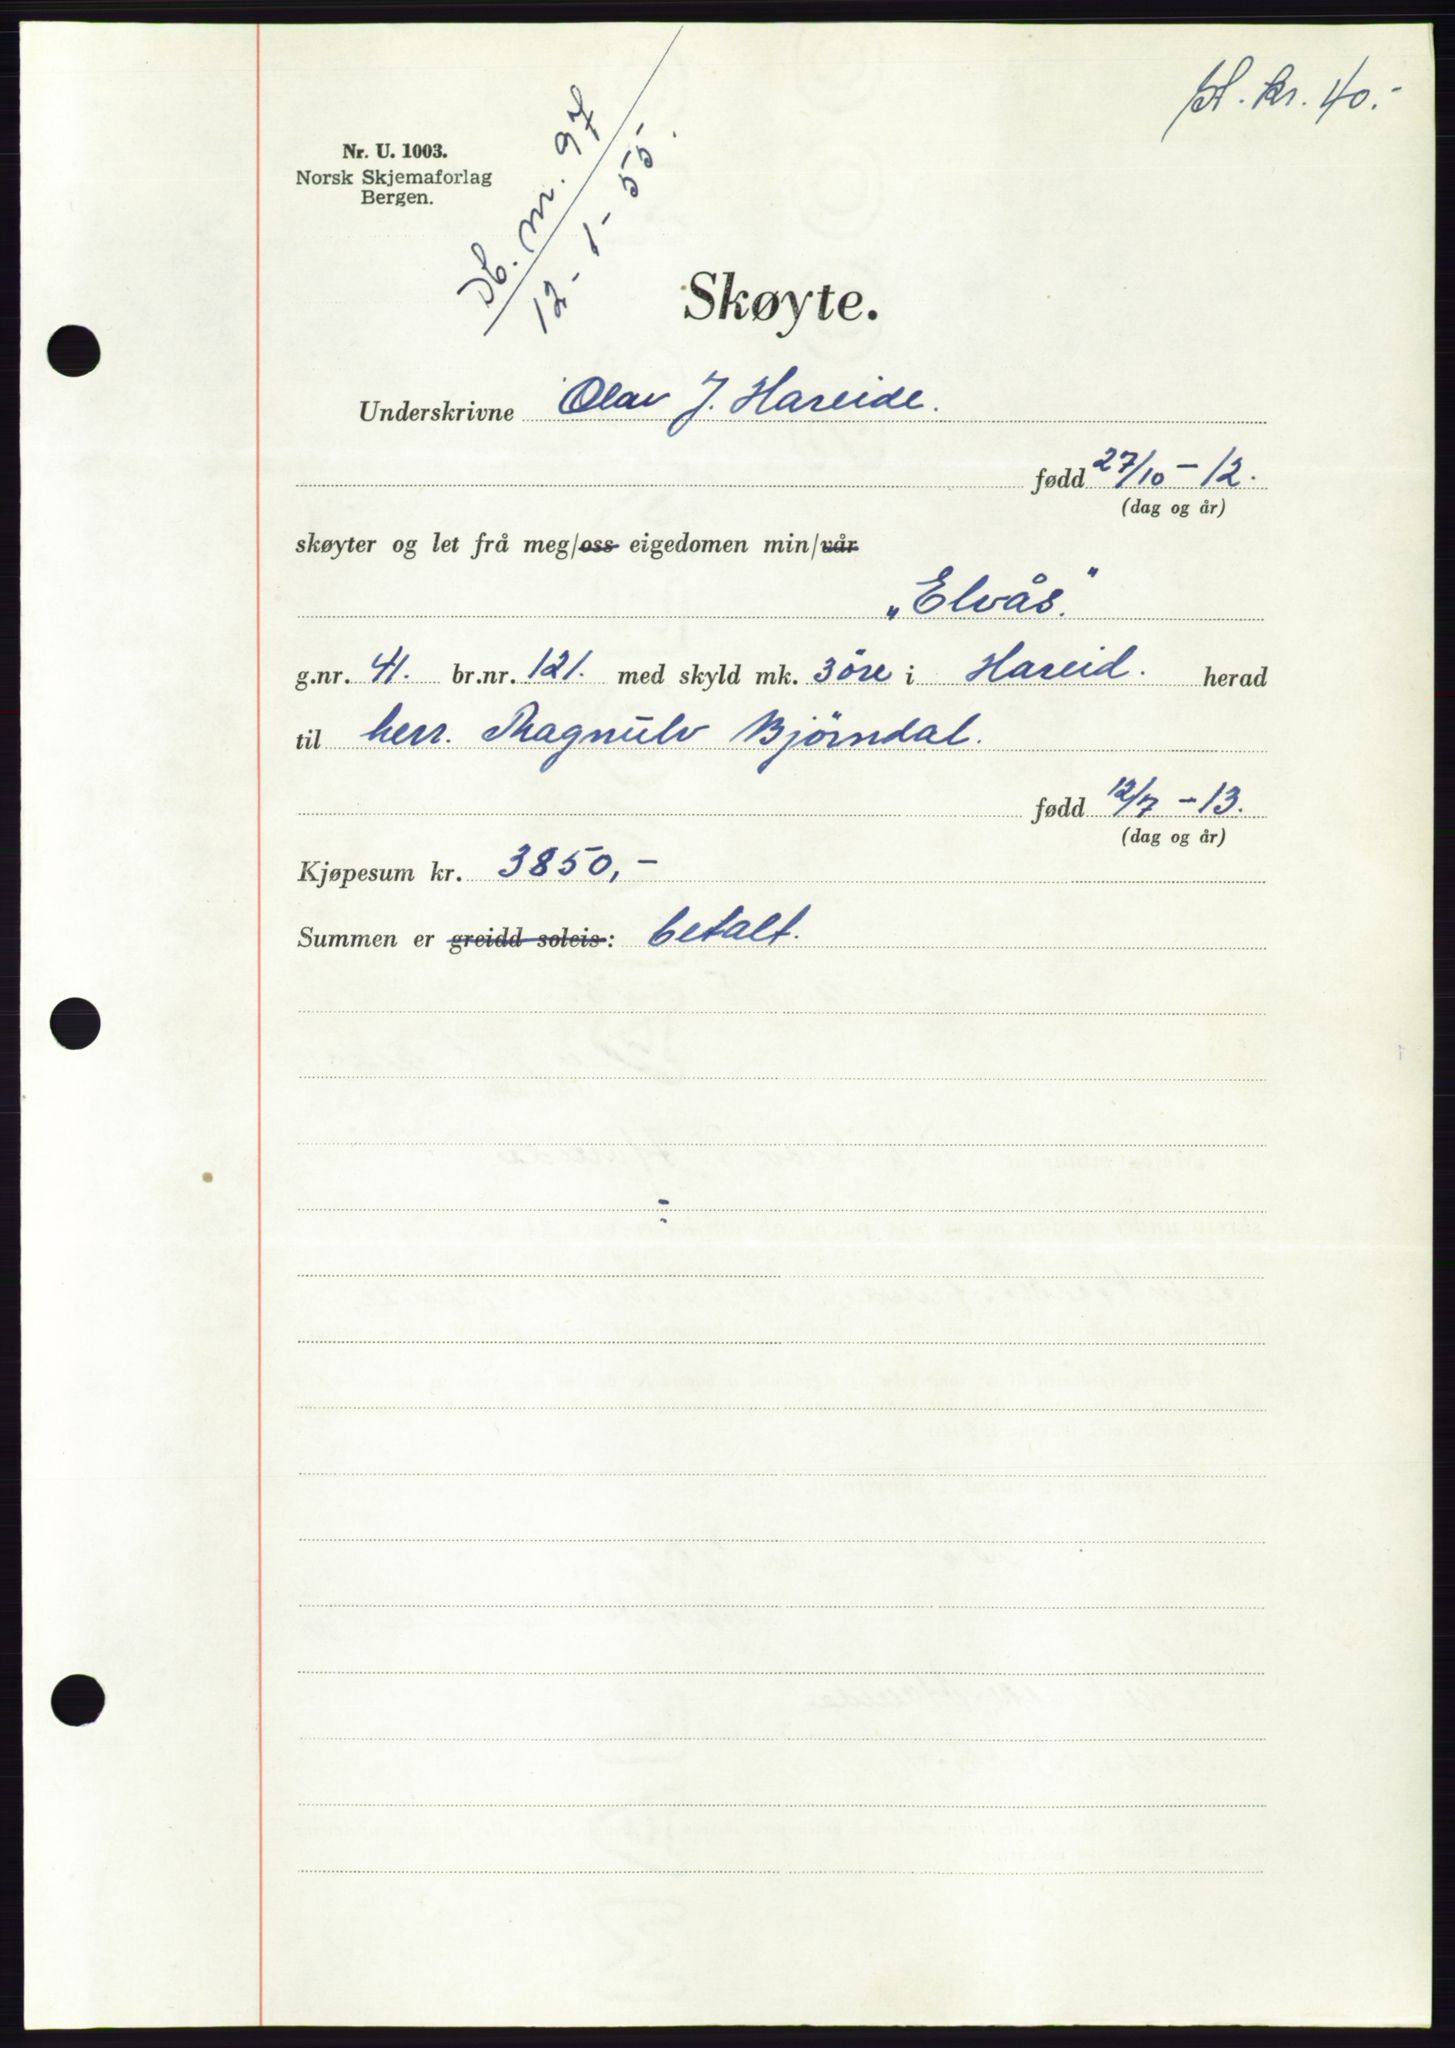 St. kr. 40.-
Nr. U. 1003.
Norsk Skjemaforlag
Bergen.
Db. nr. 97
12-1-55.
Skøyte.
Underskrivne Olav J. Hareide.
fødd 27/10-12.
(dag og år)
skøyter og let frå meg/oss eigedomen min/vår
„Elvås."
g.nr. 41. br.nr. 121. med skyld mk. 3 öre i Hareid. herad
til herr. Ragnulv Bjørndal.
fødd 12/7-13.
(dag og år)
Kjøpesum kr. 3850,-
Summen er greidd soleis: betalt.